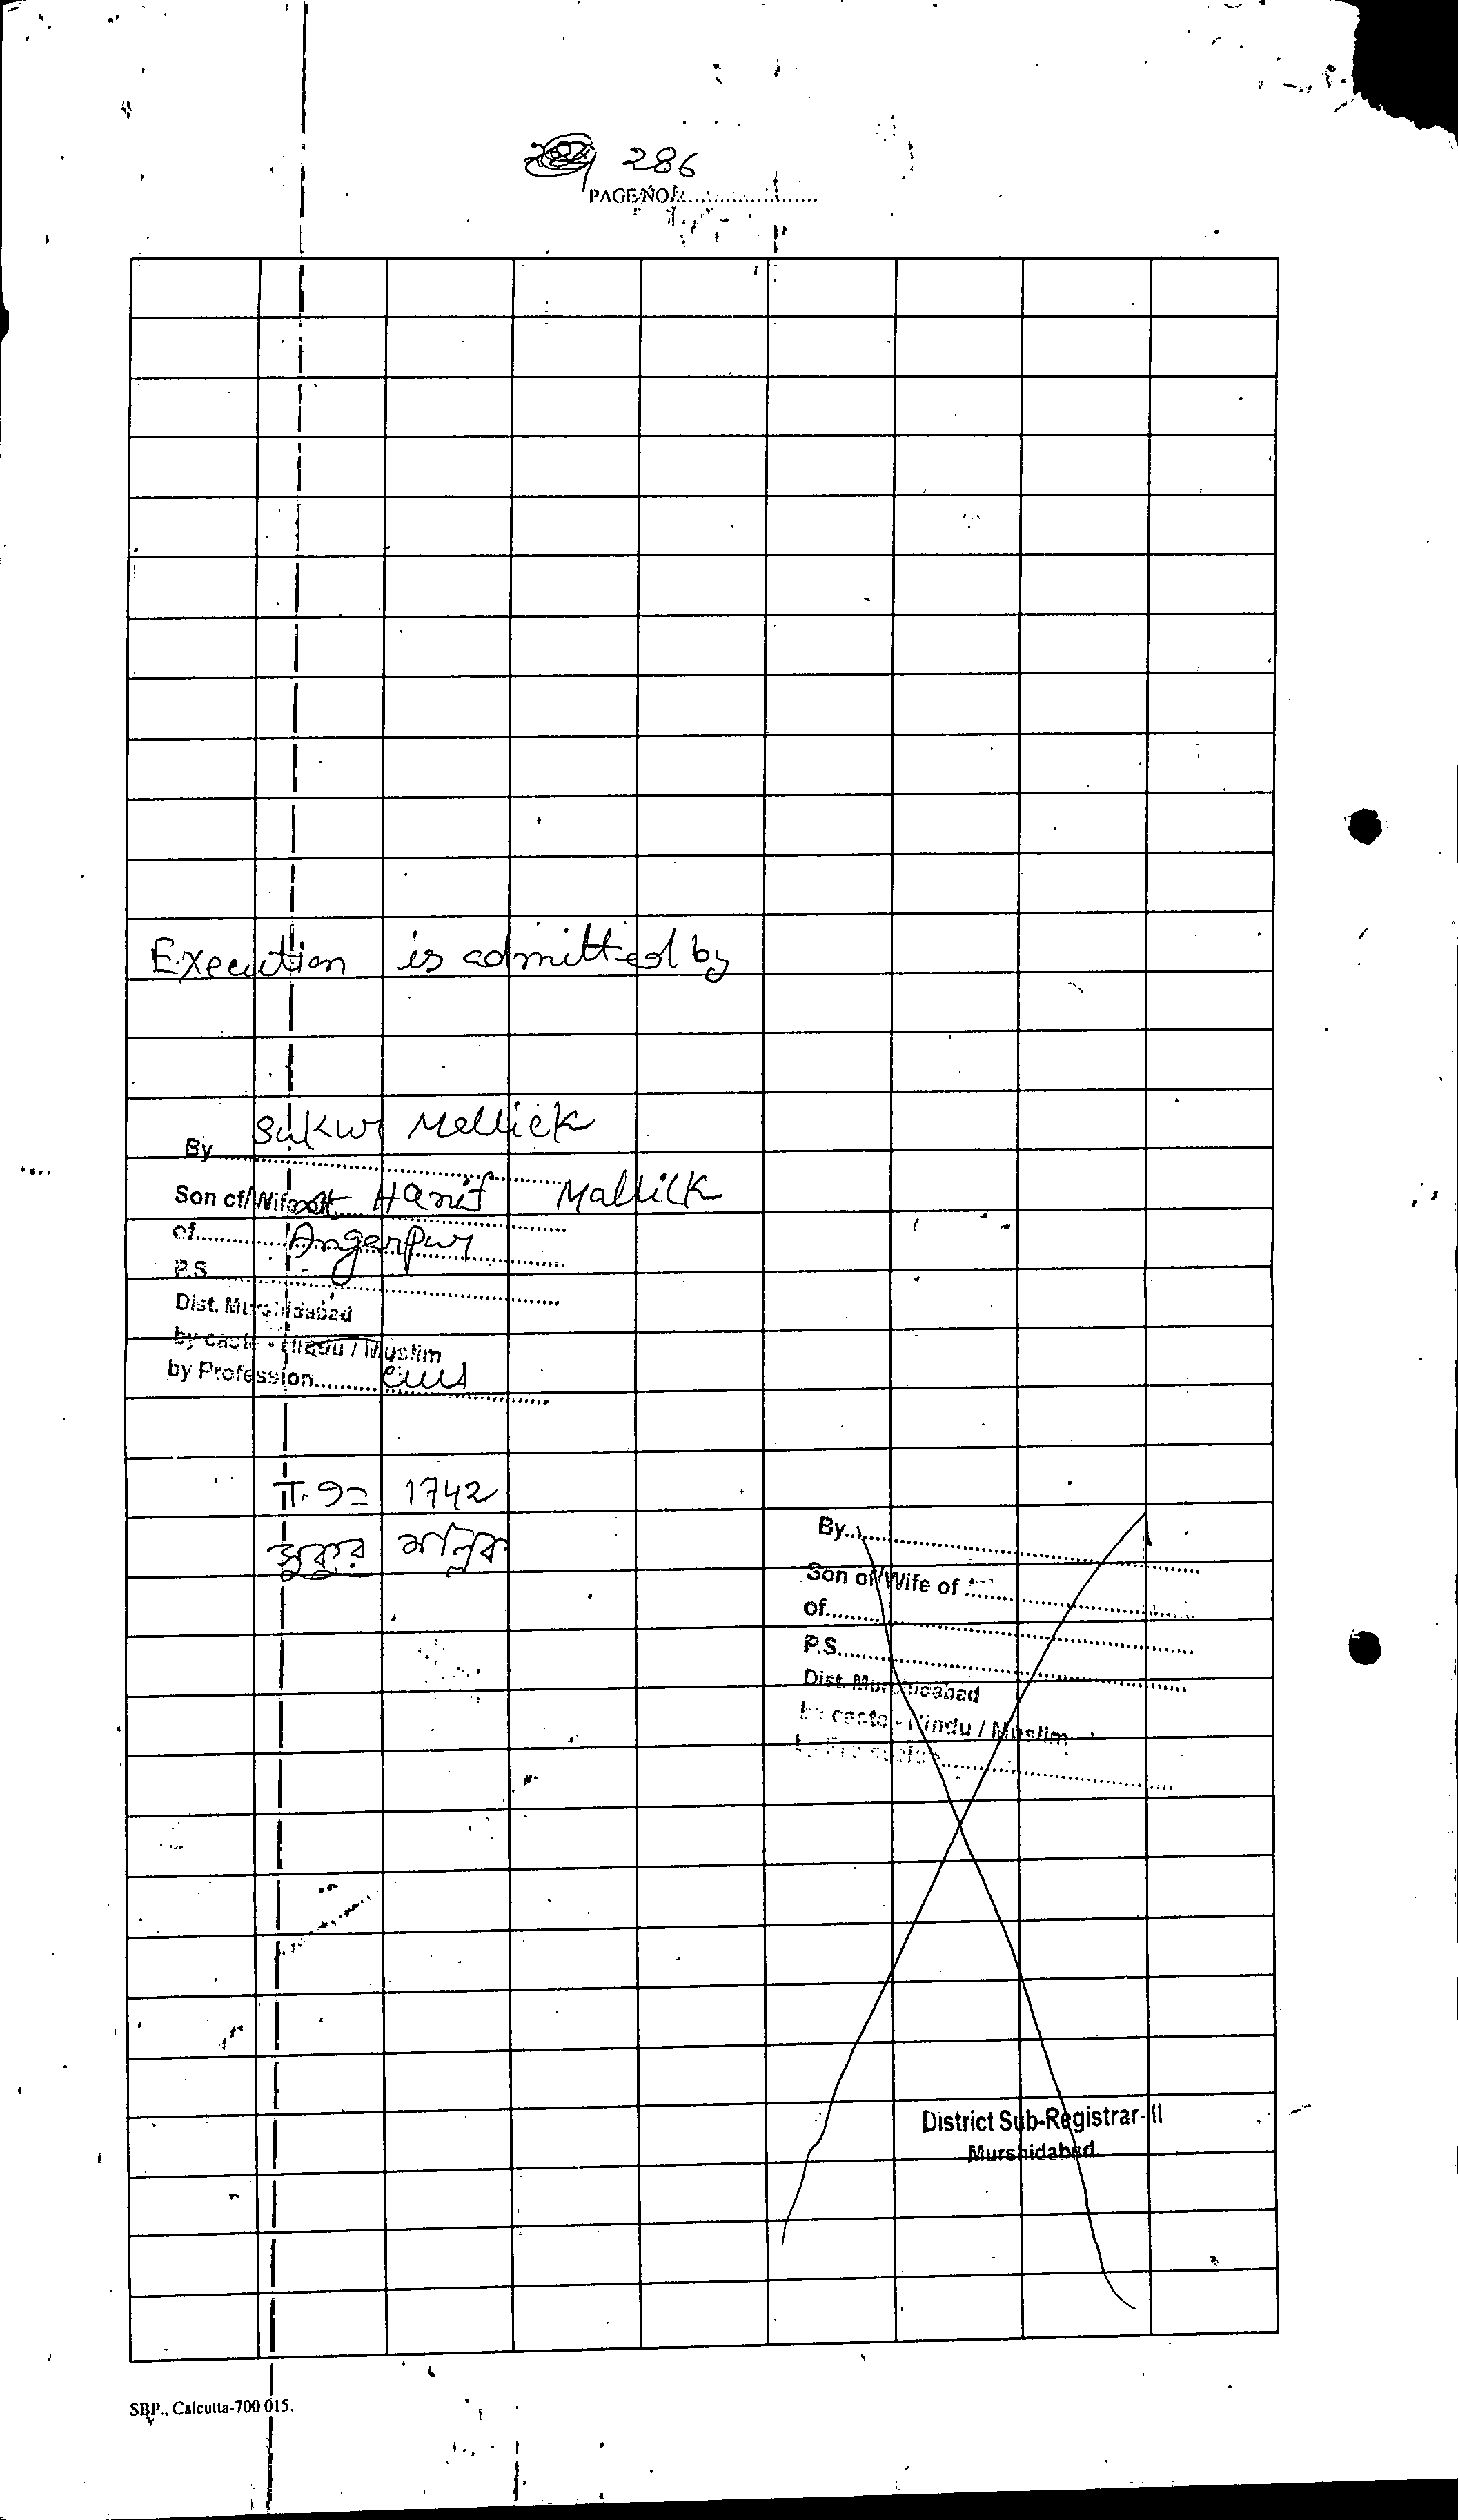 286
PAGE NO.
Execution is admitted by
By Sukur Mallick
Son of/Wife of Hanif Mallick
of Angarpur
P.S.
Dist. Murshidabad
by caste - Hindu / Muslim
by Profession
1742
সুকুর মল্লিক
By
Son of/Wife of
of
P.S.
Dist. Murshidabad
by caste - Hindu / Muslim
by Profession
District Sub-Registrar-II
Murshidabad
SBP., Calcutta-700 015.